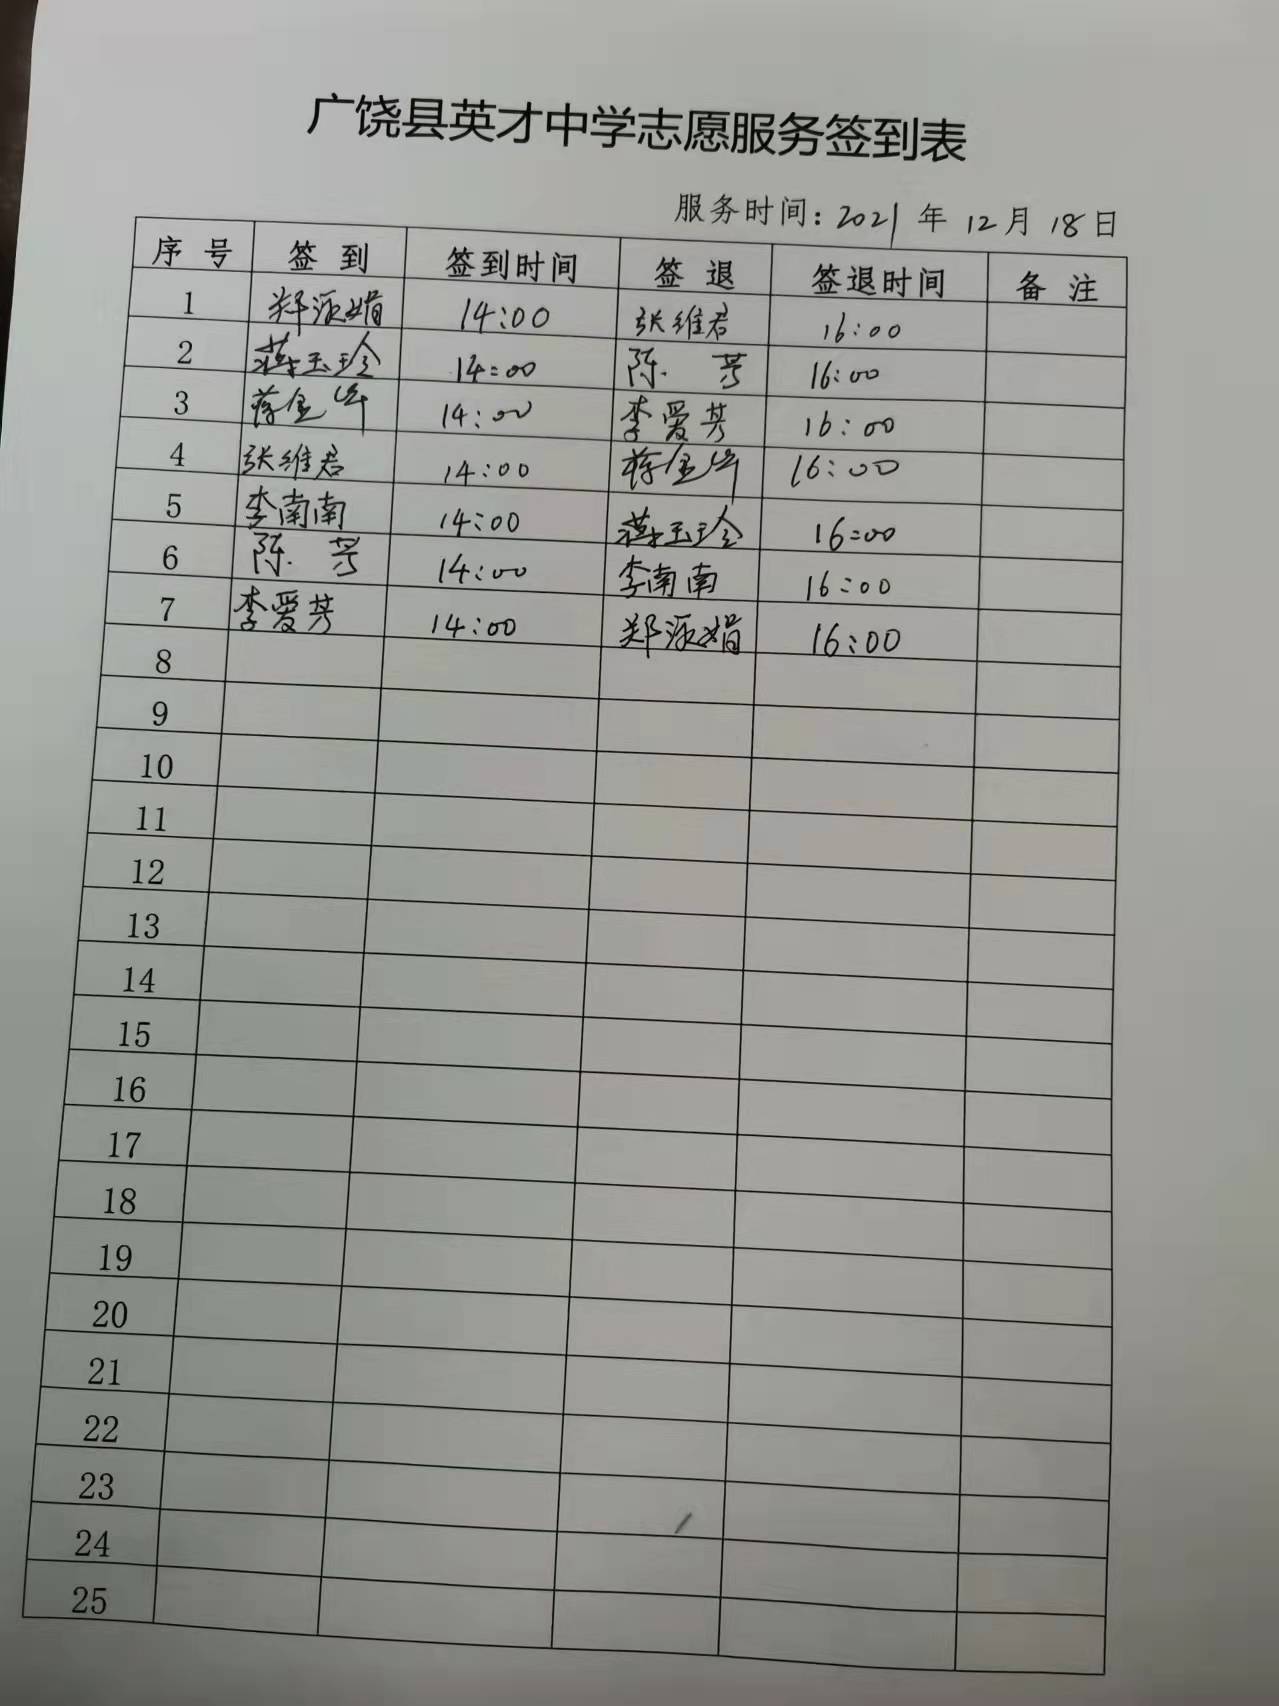 广饶县英才中学志愿服务签到表
服务时间：2021年12月18日
序号 签到 签到时间 签退 签退时间 备注
1 郑派娟 14:00 张维君 16:00
2 玉珍 14:00 陈芳 16:00
3 蒋金 14:00 李爱芳 16:00
4 张维君 14:00 蒋金 16:00
5 李南南 14:00 玉珍 16:00
6 陈芳 14:00 李南南 16:00
7 李爱芳 14:00 郑派娟 16:00
8
9
10
11
12
13
14
15
16
17
18
19
20
21
22
23
24
25